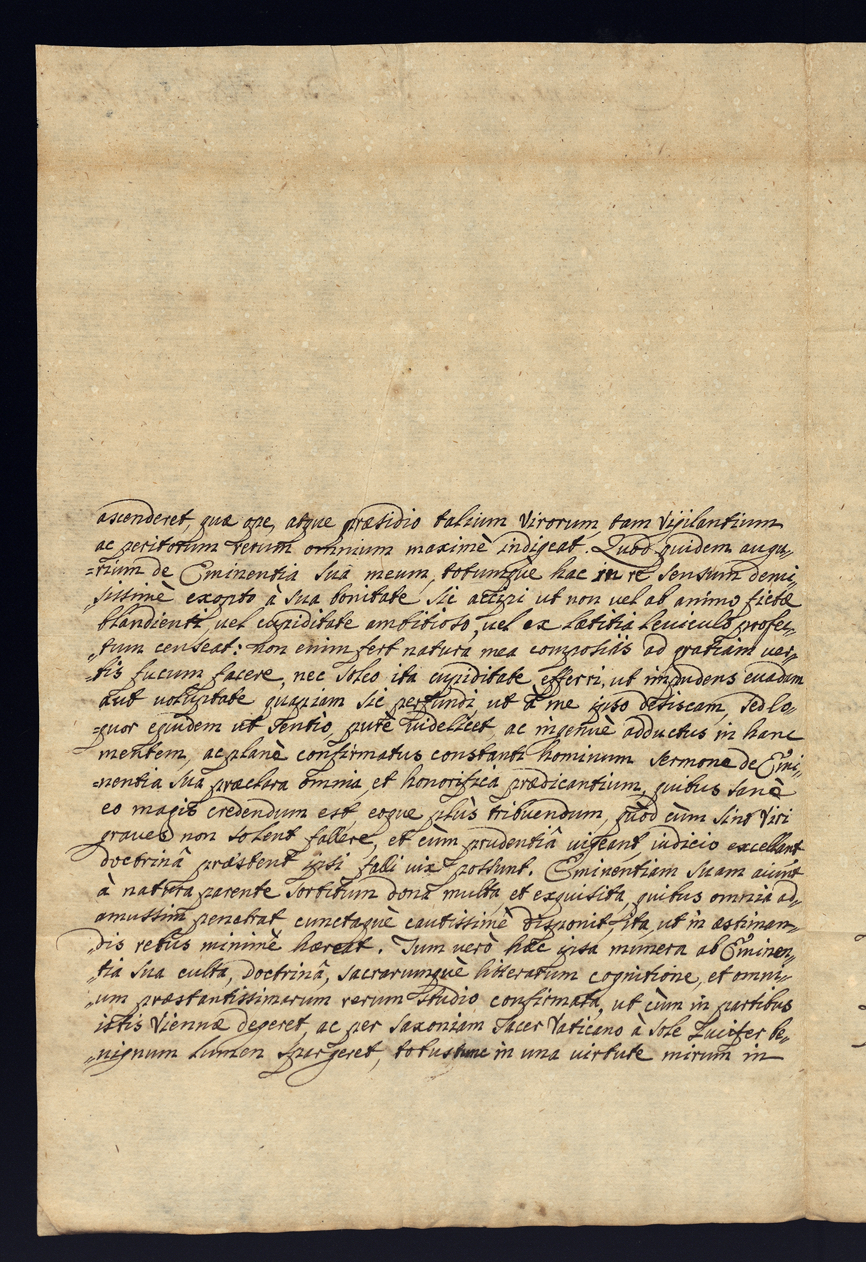 ascenderet, quæ ope, atque præsidio talium Virorum tam Vigilantium
ac peritorum rerum omnium maximè indigeat. Quod quidem augu„
„rium de Eminentia Sua meum, totumque hac in re sensum demi„
„sissimè exopto à sua bonitate sic accipi ut non vel ab animo fictæ
blandienti, vel cupiditate ambitioso, vel ex lætitia leviculo profec„
„tum censeat: non enim fert natura mea compositis ad gratiam ver„
„tis fucum facere, nec soleo ita cupiditate efferri, ut impudens evadam
aut voluptate quapiam sic perfundi, ut à me ipso desciscam, sed lo„
„quor equidem ut sentio, purè videlicet, ac ingenuè adductus in hanc
mentem, ac planè confirmatus constanti hominum sermone de Emi„
„nentia sua præclara omnia, et honorifica prædicantium, quibus sanè
eo magis credendum est, eoque plùs tribuendum, quòd cùm sint Viri
graves non solent fallere, et cùm prudentiâ vigeant, iudicio excellant
doctrinâ præstent ipsi falli vix possunt. Eminentiam suam aiunt
à natura parente sortitum dona multa et exquisita, quibus omnia ad„
amussim penetrat, cunctaquè cautissimè disponit, ita, ut in æstiman„
„dis rebus minimè hæreat. Tum verò hæc ipsa munera ab Eminen„
„tia sua culta, doctrinâ, sacrarumquè litterarum cognitione, et omni„
„um præstantissimarum rerum studio confirmata, ut cùm in partibus
istis Viennæ degeret, ac per Saxoniam sacer Vaticano à Sole Lucifer be„
„nignum lumen spargeret, totus tunc in una virtute mirum in